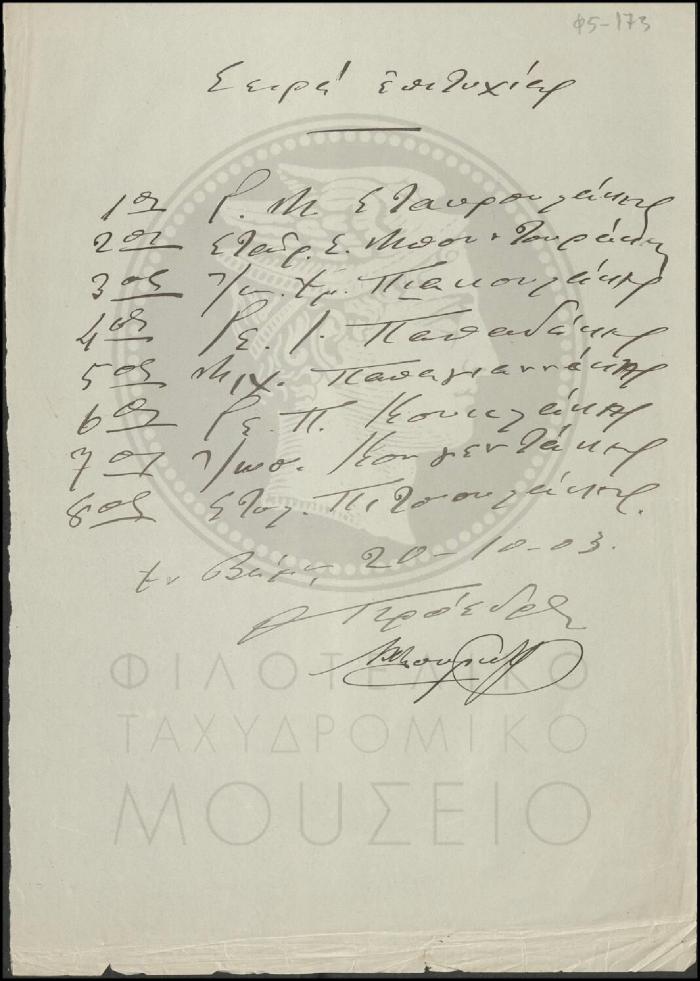 Φ5-173
Σειρά Ἐπιτυχίας
1ος Γ. Μ. Σταυρουλάκης
2ος Σταῦρ. Σ. Μπουντουράκης
3ος Πιακουλάκης
4ος Γε. Ι. Παπαδάκης
5ος Μιχ. Παπαγιαννάκης
6ος Γε. Π. Κουκλάκης
7ος Ἰωσ. Κουγεντάκης
8ος Στυλ. Πιτσουλάκης.
Ἐν Βάμῳ 20-10-03.
Ὁ Πρόεδρος
ΦΙΛΟΤΕΛΙΚΟ
ΤΑΧΥΔΡΟΜΙΚΟ
ΜΟΥΣΕΙΟ